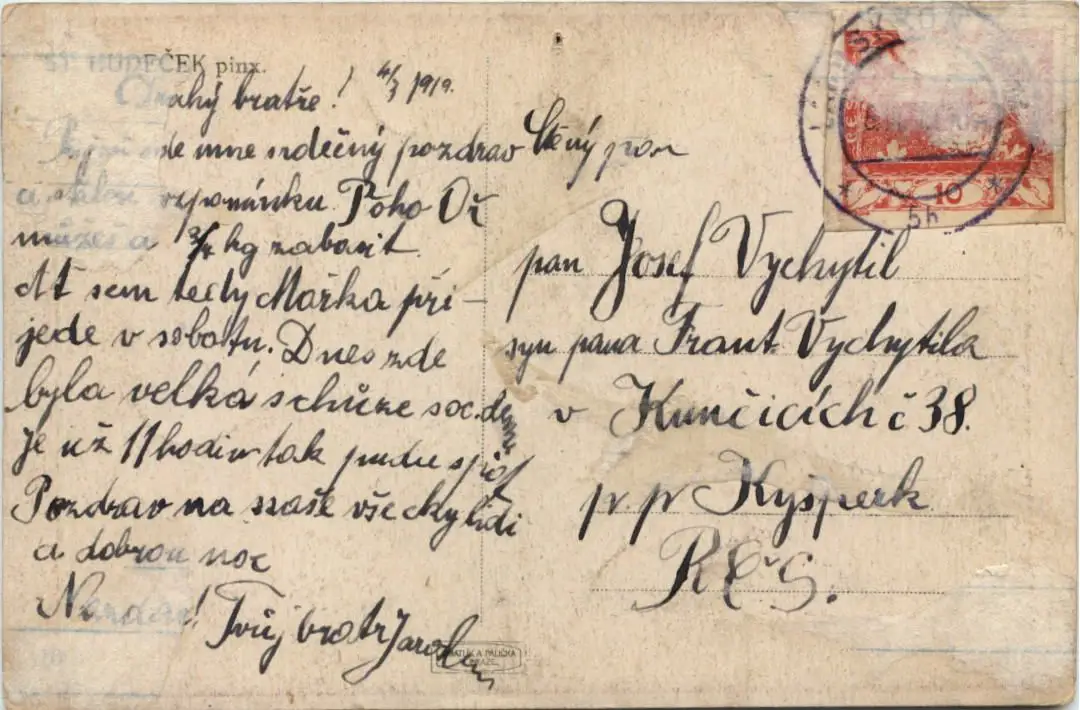 ŠT. HUDEČEK pinx.
Drahý bratře! 4/3 1919.
ode mne srdečný pozdrav
a vzpomínku. Poho Oř
můžeš a 3/4 kg zabavit.
At sem tedy Mařka při-
jede v sobotu. Dnes zde
byla velká schůze soc. dem.
Je už 11 hodin tak pudu spát
Pozdrav na naše všecky lidi
a dobrou noc
Nazdar! Tvůj bratr Jaroslav
Ctěný pan
pan Josef Vychytil
syn pana Frant. Vychytila
v Kunčicích č 38.
p. p Kyšperk
RČS.
10
5h